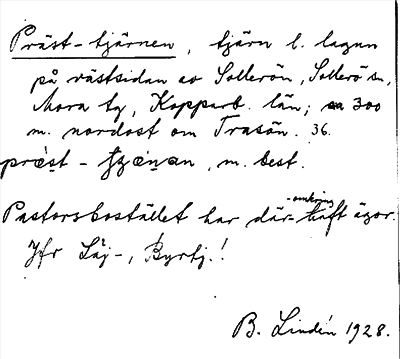 Präst-tjärnen, tjärn l. lagun
på västsidan av Sollerön, Sollerö sn,
Mora tg, Kopparb. län; ca 300
m. nordost om Trasön. 36.
m. best.
Pastorsbostället har där-omkring haft ägor.
Jfr Läj-, Byrtj.!
B. Lindén 1928.